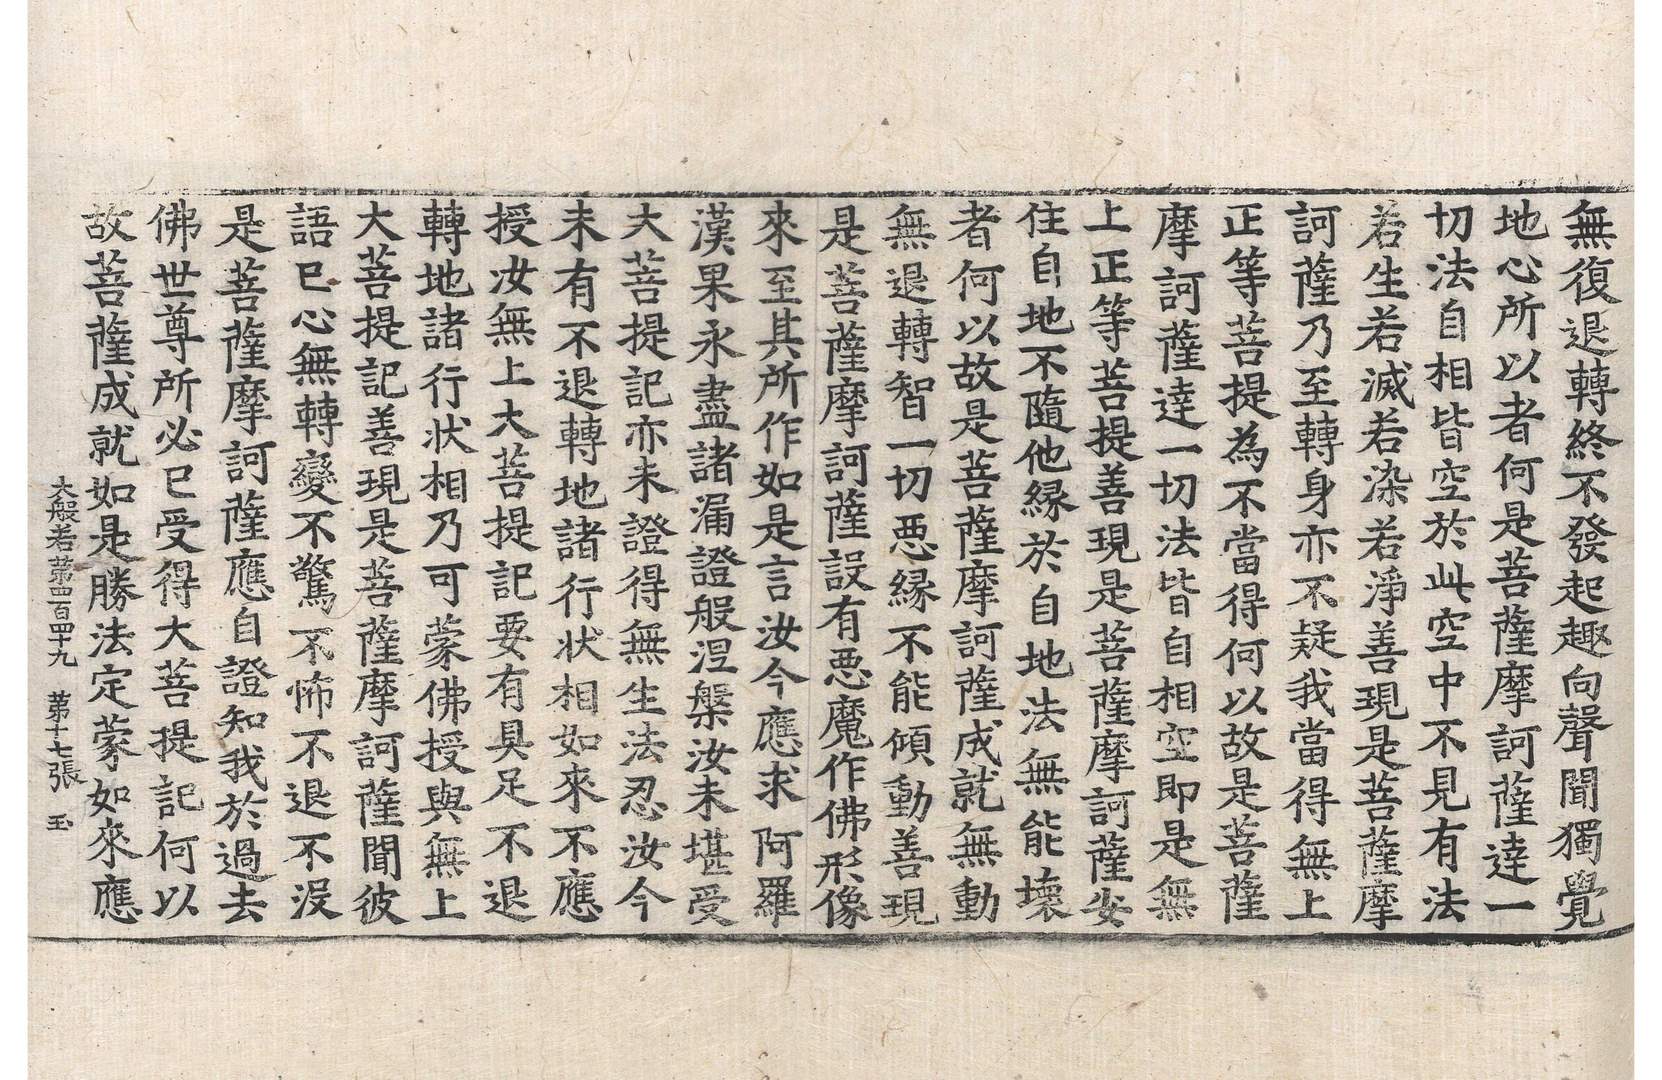 無復退轉終不發起趣向聲聞獨覺
地心所以者何是菩薩摩訶薩達一
切法自相皆空於此空中不見有法
若生若滅若染若淨善現是菩薩摩
訶薩乃至轉身亦不疑我當得無上
正等菩提為不當得何以故是菩薩
摩訶薩達一切法皆自相空即是無
上正等菩提善現是菩薩摩訶薩安
住自地不隨他緣於自地法無能壞
者何以故是菩薩摩訶薩成就無動
無退轉智一切惡緣不能傾動善現
是菩薩摩訶薩設有惡魔作佛形像
來至其所作如是言汝今應求阿羅
漢果永盡諸漏證般涅槃汝未堪受
大菩提記亦未證得無生法忍汝今
未有不退轉地諸行狀相如來不應
授汝無上大菩提記要有具足不退
轉地諸行狀相乃可蒙佛授與無上
大菩提記善現是菩薩摩訶薩聞彼
語已心無轉變不驚不怖不退不沒
是菩薩摩訶薩應自證知我於過去
佛世尊所必已受得大菩提記何以
故菩薩成就如是勝法定蒙如來應
大般若第四百四十九 第十七張 玉